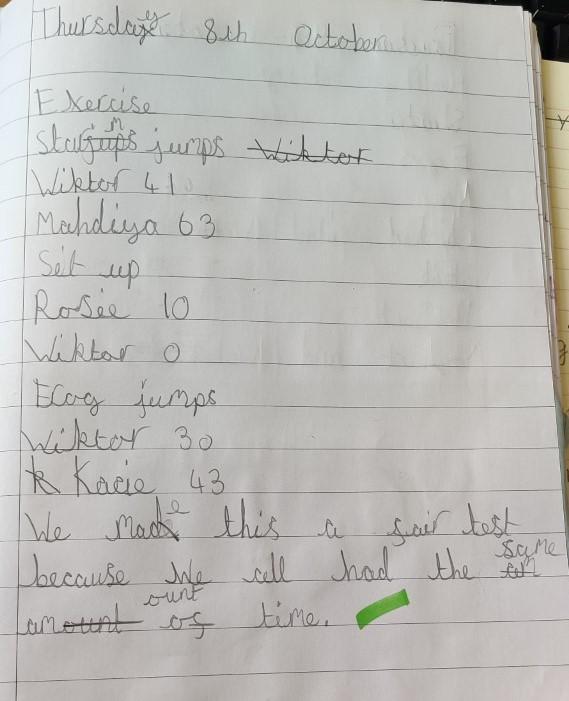 Thursday 8th October
Exercise
Star jumps Wiktor
Wiktor 41
Mahdiya 63
Sit up
Rosie 10
Wiktor 0
Frog jumps
Wiktor 30
K Kacie 43
We made this a fair test
because We all had the same
amount of time.